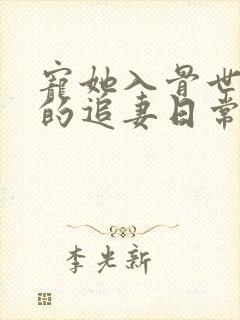 寵她入骨世
的追妻日常
李光新